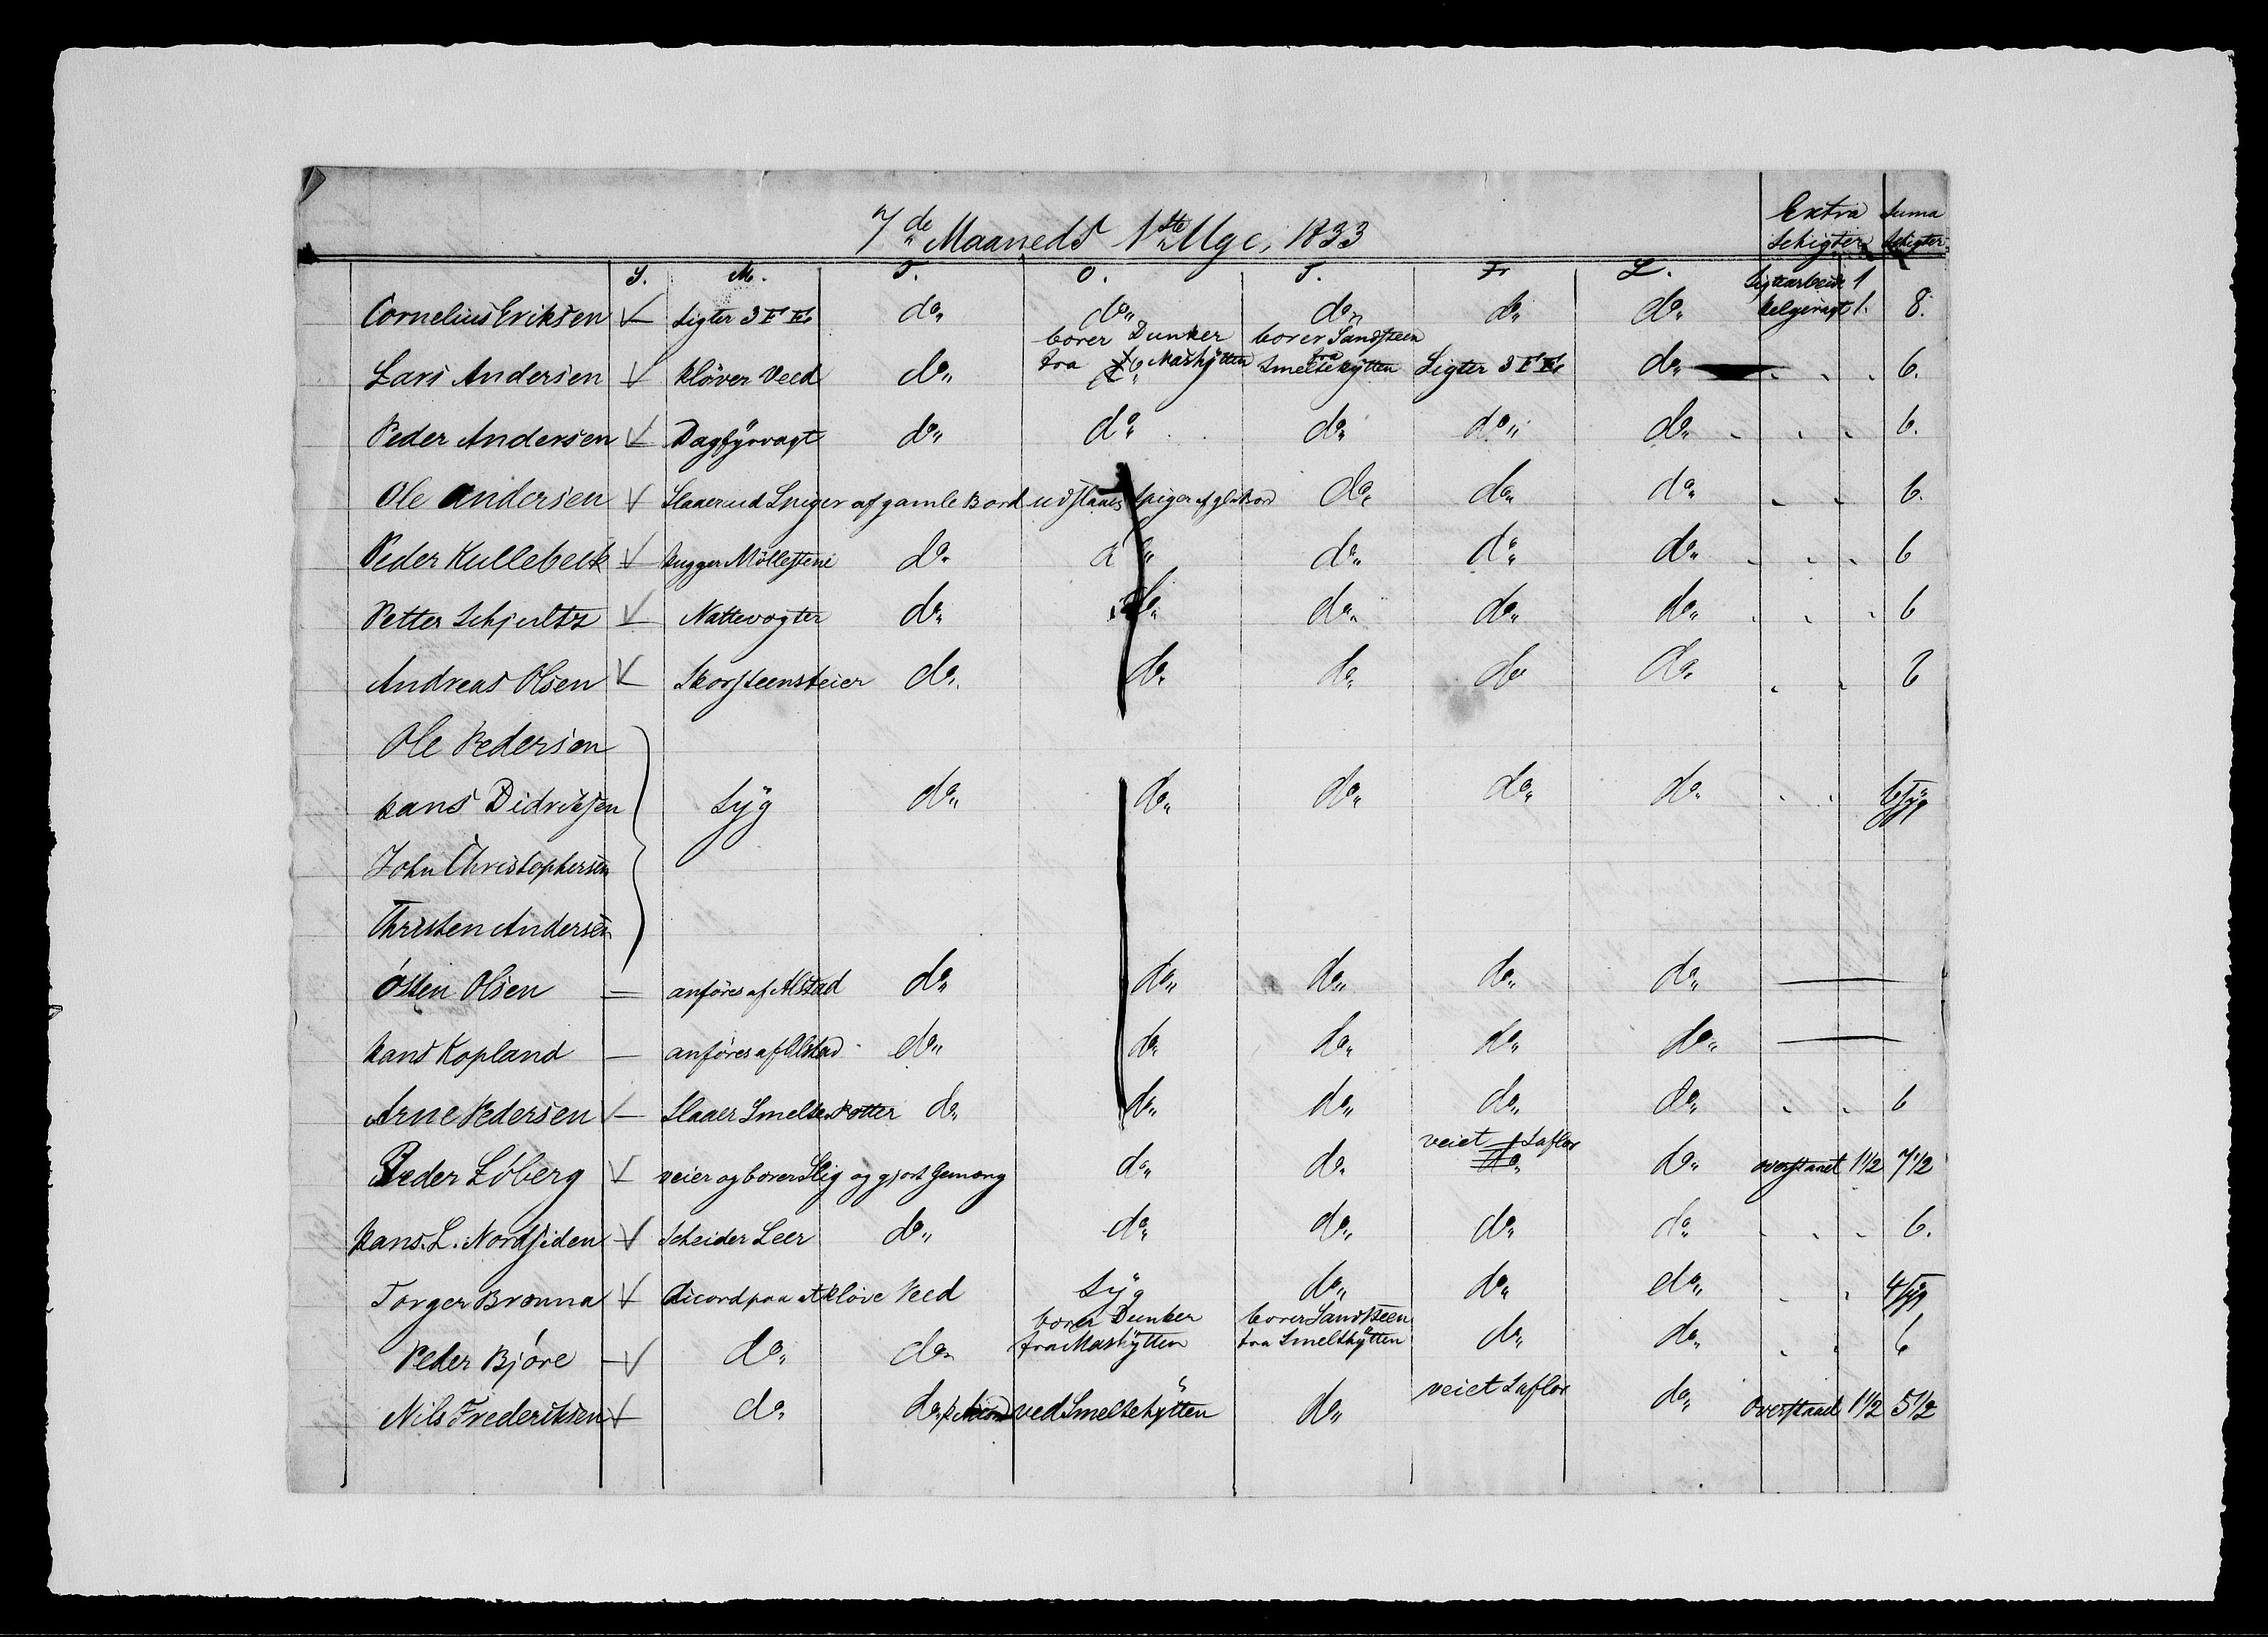 7de Maaneds 1ste Uge, 1833
Extra Schigter
Suma Schigter
S. M. T. O. T. Fr L.
Cornelius Eriksen Sigter 3 F E do do do do do Sigtearbeide 1 helgevagt 1. 8.
Lars Andersen kløver Veed do borer Dunker fra Maskÿtten borer Sandsteen fra Smeltehÿtten Sigter 3 F E do 6.
Peder Andersen Dagfÿrvagt do do do do do 6.
Ole Andersen Slaaer ud Spiger af gamle Bord udslaaer Spiger af gle Bord do do do 6.
Peder Kullebeck hugger Møllestene do do do do do 6
Petter Schjultz Nattevogter do do do do do 6
Andreas Olsen Skorsteensfeier do do do do do 6
Ole Pedersen
Hans Didriksen Sÿg do do do do do 6 sÿg
John Christophersen
Christen Andersen
Østen Olsen = anføres af Alstad do do do do do
Hans Kopland – anføres af Alstad do do do do do
Arne Pedersen Slaaer Smelte Potter do do do do do 6
Peder Løberg veier og borer Slig og gjort Gemæng do do veiet Saflor do do overstaaet 1 1/2 7 1/2
Hans. L. Nordsiden Scheider Leer do do do do do 6.
Torger Brønna Accord paa at kløve Veed Sÿg do do do 4 sÿg
Peder Bjøre do do borer Dunker fra Maskÿtten borer Sandsteen fra Smelthÿtten do do 6
Nils Frederiksen do do p Accord ved Smeltehÿtten do veiet Saflor do Overstaaet 1 1/2 5 1/2